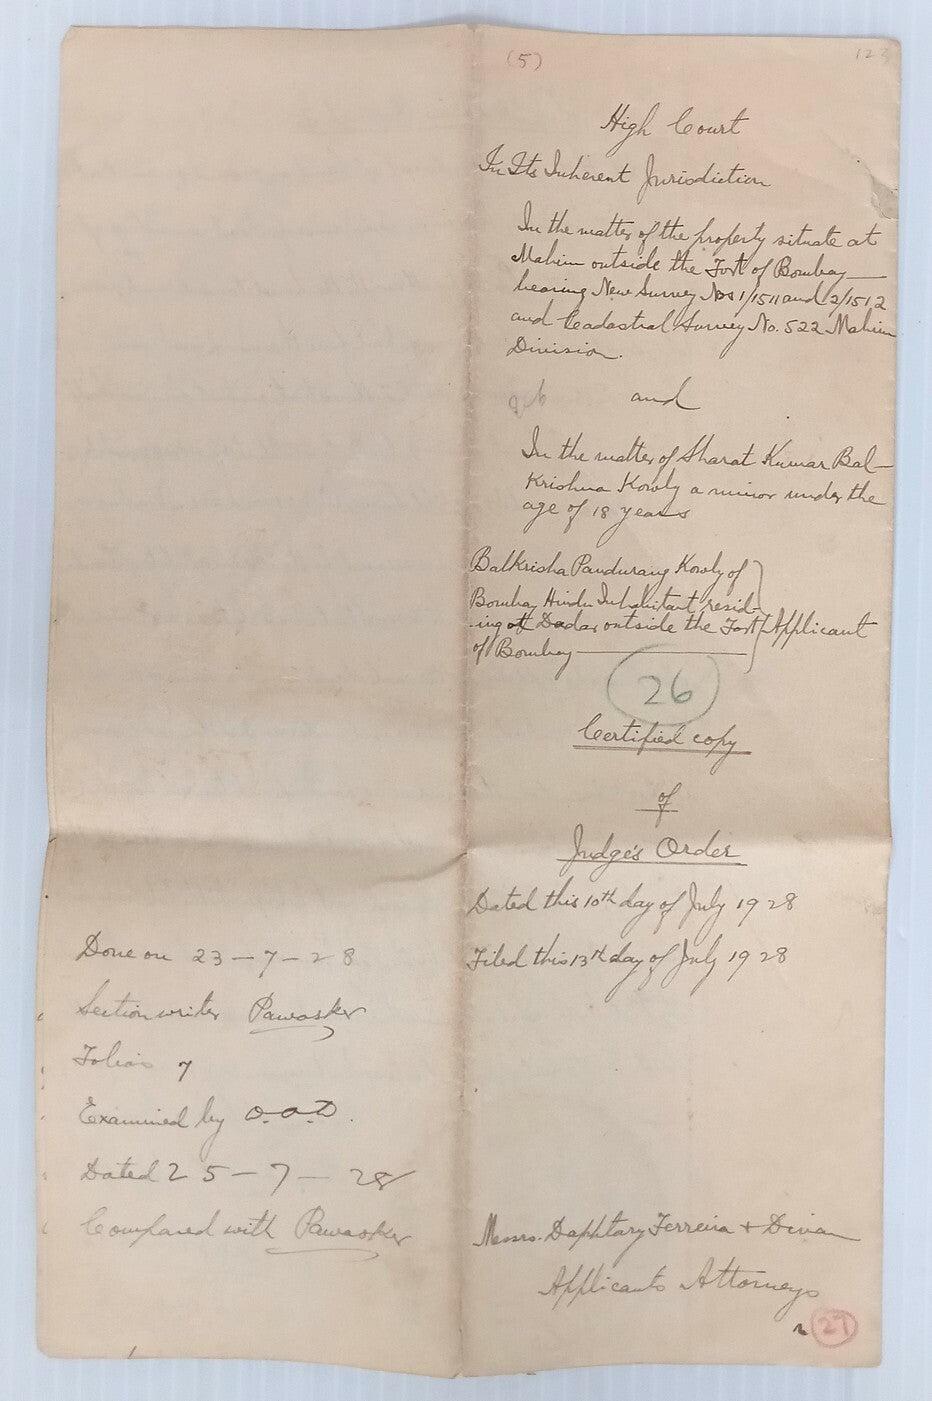 (5)
High Court
In Its Inherent Jurisdiction
In the matter of the property situate at
Mahim outside the Fort of Bombay —
bearing New Survey Nos 1/1511 and 2/1512
and Ceadastral Survey No. 522 Mahim
Division.
and
In the matter of Sharat Kumar Bal-
Krishna Kowly a minor under the
age of 18 years
Balkrisha Pandurang Kowly of
Bombay Hindu Inhabitant resid-
ing at Dadar outside the Fort } Applicant
of Bombay —
26
Certified copy
of
Judge's Order
Dated this 10th day of July 1928
Filed this 13th day of July 1928
Messrs. Daphtary Ferreira & Divan
Applicants Attorneys
27
Done on 23-7-28
Section writer Pawasker
Folios 7
Examined by
Dated 25-7-28
Compared with Pawasker